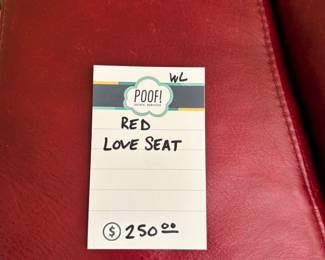 WL
POOF!
ESTATE SERVICES
RED
LOVE SEAT
$ 250.00